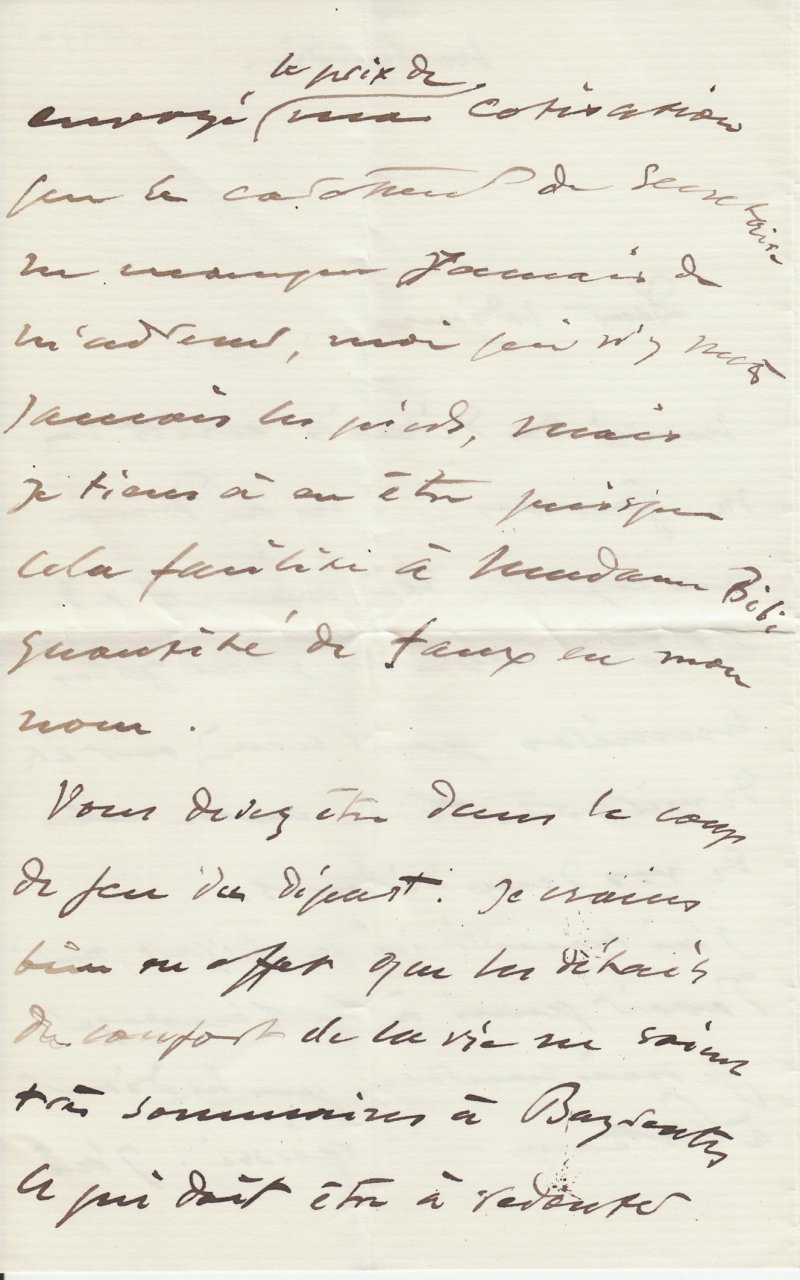 le prix de
envoyé ma cotisation
que le de secrétaire
ne manque jamais de
m'adresser, moi qui n'y mets
jamais les pieds, mais
je tiens à en être puisque
cela facilite à Madame Bibi
quantité de faux en mon
nom.
Vous devez être dans le coup
de feu du départ. Je crains
bien en effet que les détails
du confort de la vie ne soient
très sommaires à Bayreuth
ce qui doit être à redouter